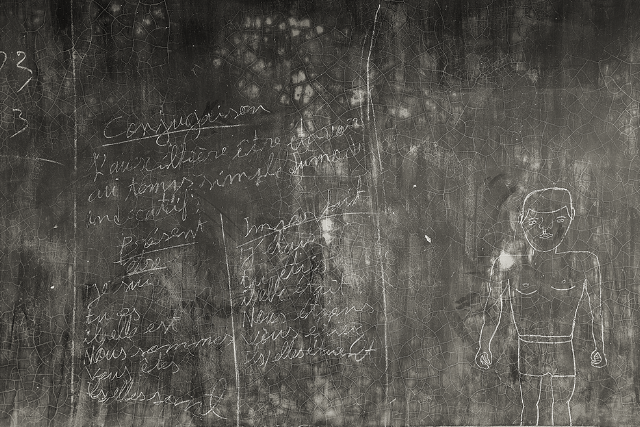 23
3
Conjugaison
L'auxilière être
au temps simple
indicatif.
Présent
être
Je suis
Tu es
il elle est
Nous sommes
Vous êtes
ils elles sont
Imparfait
J'étais
il elle était
Nous étions
Vous étiez
ils elles étaient